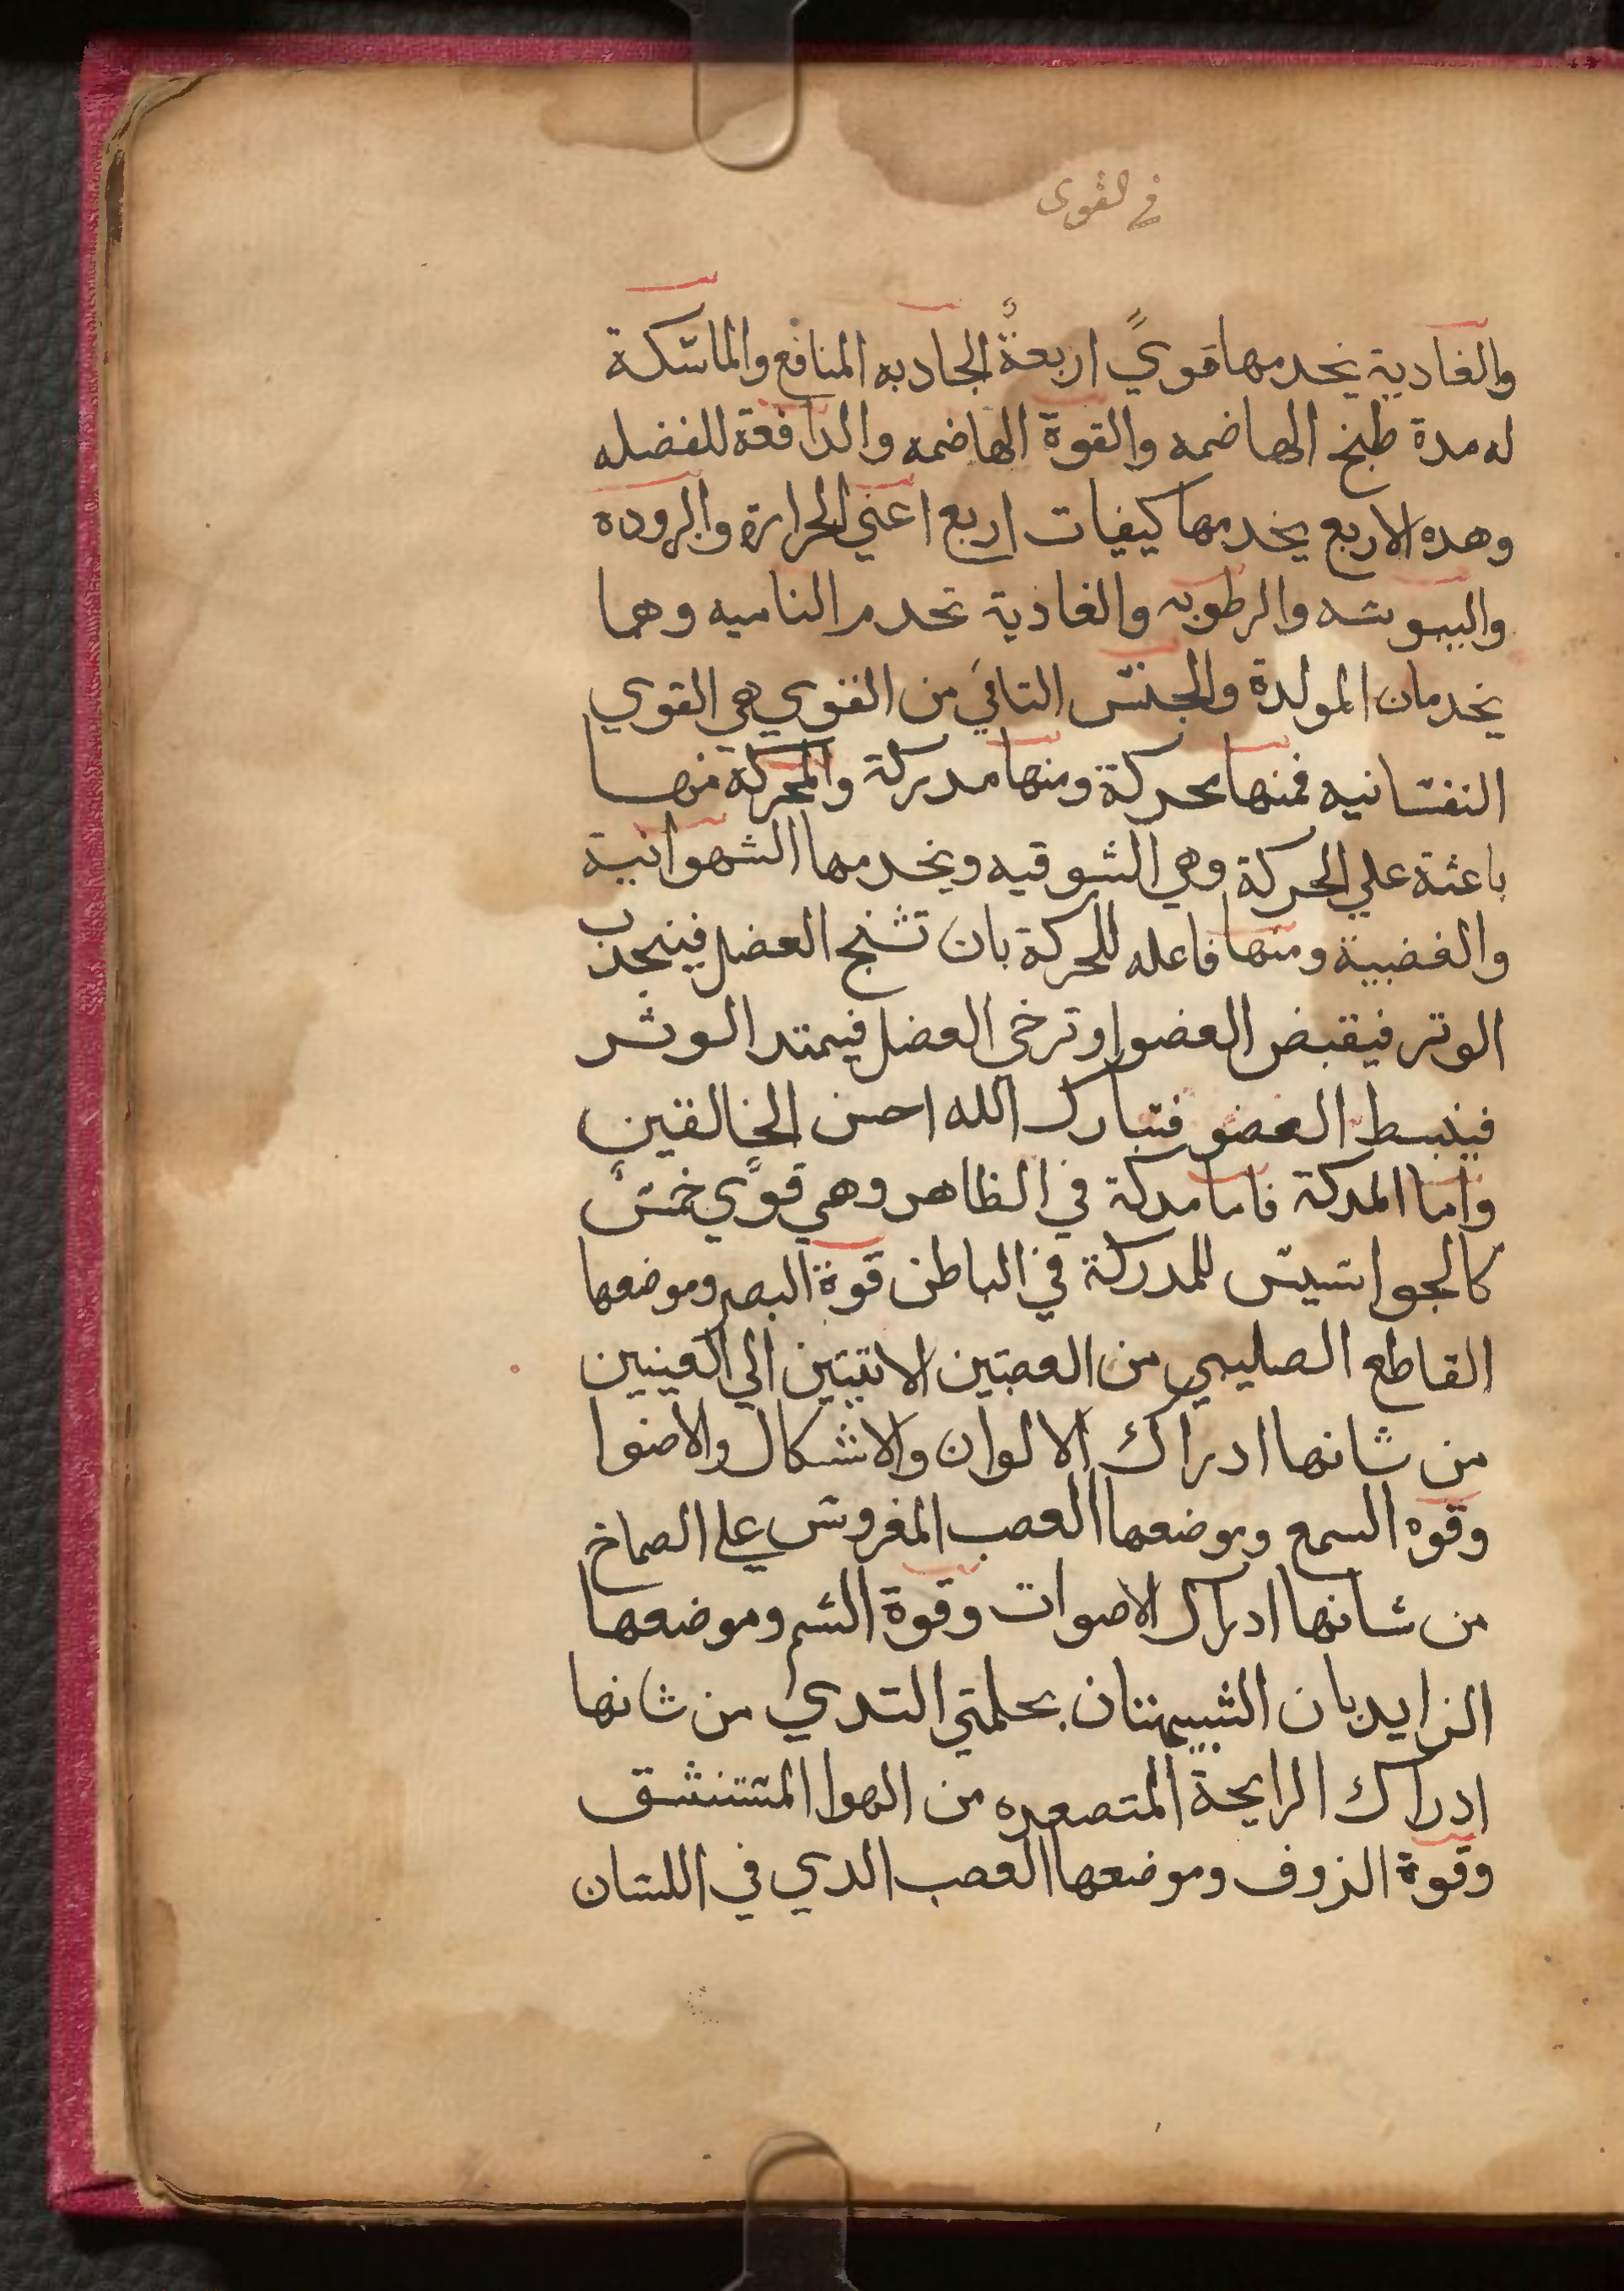 في القوى
والغادية يخدمها قويً اربعةٌ الجادبه المنافع والماسكة
له مدة طبخ الهاضمه والقوة الهاضمه والدافعة للفضله
وهده الاربع يخدمها كيفيات اربع اعني الحرارة والبرودة
واليبوسه والرطوبه والغاذية تخدم الناميه وهما
يخدمان المولدة والجنس التاني من القوي هي القوي
النفسانيه فمنها محركة ومنها مدركة والمحركة منها
باعثة علي الحركة وهي الشوقيه ويخدمها الشهوانية
والغضبية ومنها فاعله للحركة بان تشنج العضل فينجدب
الوتر فيقبض العضو او ترخي العضل فيمتد الوتر
فينبسط العضو فتبارك الله احسن الخالقين
واما المدركة فاما مدركة في الظاهر وهي قويً خمسٌ
كالجواسيس للمدركة في الباطن قوة البصر وموضعها
القاطع الصليبي من العصبتين الاتيتين الي العينين
من شانها ادراك الالوان والاشكال والاضوا
وقوه السمع وموضعها العصب المفروش علي الصماخ
من شانها ادراك الاصوات وقوة الشم وموضعها
الزايدبان الشبيهتان بحلمتي التدي من شانها
ادراك الرايحة المتصعده من الهوا المستنشق
وقوة الزوف وموضعها العصب الدي في اللسان